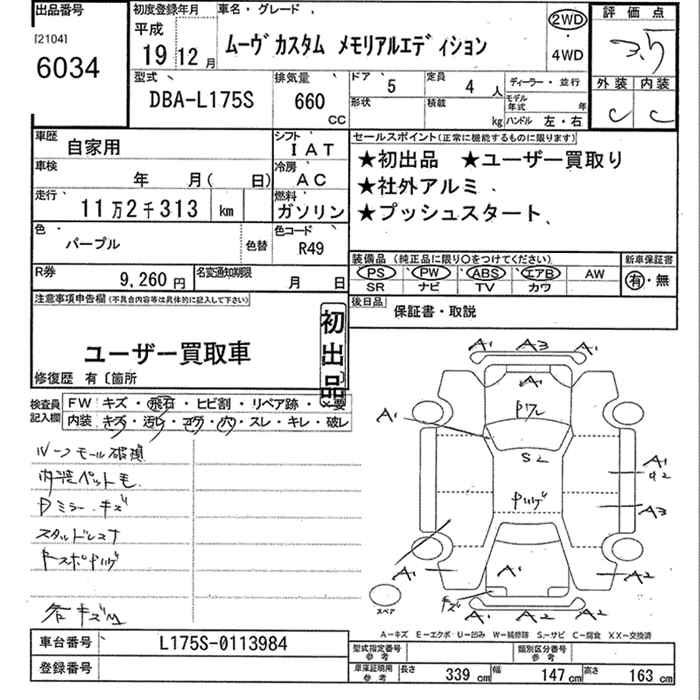 出品番号
[2104]
6034
初度登録年月
平成
19 12月
車名・グレード
ムーヴ カスタム メモリアルエディション
2WD
4WD
評価点
3.5
外装 内装
C C
型式
DBA-L175S
排気量
660
CC
ドア
5
定員
4 人
形状
積載
kg
ディーラー・並行
モデル年式 年
ハンドル 左・右
車歴
自家用
シフト
IAT
車検
年 月( 日)
冷房
AC
走行
11万2千313 km
燃料
ガソリン
色
パープル
色替
色コード
R49
R券
9,260円
名変通知期限
月 日
セールスポイント(正常に機能するものに限ります)
★初出品 ★ユーザー買取り
★社外アルミ
★プッシュスタート
装備品 (純正品に限り〇をつけてください)
PS PW ABS エアB AW
SR ナビ TV カワ
新車保証書
有・無
後日品
保証書・取説
注意事項申告欄(不具合内容等は具体的に記入して下さい)
ユーザー買取車
初出品
修復歴 有〔箇所
検査員記入欄
FW キズ・飛石・ヒビ割・リペア跡・×要
内装 キズ・汚レ・コゲ・穴・スレ・キレ・破レ
ルーフモール破損
内装ペット毛
Dミラーキズ
スタッドレスナ
各キズ凹
A1 A3 A1
A1
Pフレ
A1
S2
A1
U2
A3
A1
A1
キズ
A2
A2 A2
スペア
A-キズ E-エクボ U-凹み W-補修跡 S-サビ C-腐食 XX-交換済
車台番号
L175S-0113984
登録番号
型式指定番号
参考
類別区分番号
参考
車庫証明用
参考
長さ 339 cm 幅 147 cm 高さ 163 cm